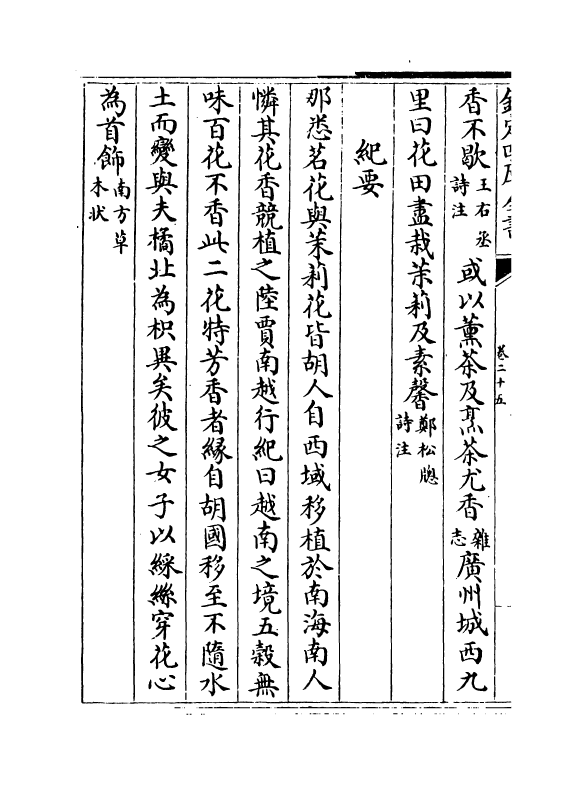 欽定四庫全書
卷二十五
香不歇王右丞詩注或以薰茶及烹茶尤香雜志廣州城西九
里曰花田盡栽茉莉及素馨鄭松牕詩注
紀要
那悉茗花與茉莉花皆胡人自西域移植於南海南人
憐其花香競植之陸賈南越行紀曰越南之境五榖無
味百花不香此二花特芳香者縁自胡國移至不隨水
土而變與夫橘北為枳異矣彼之女子以綵絲穿花心
為首飾南方草木状